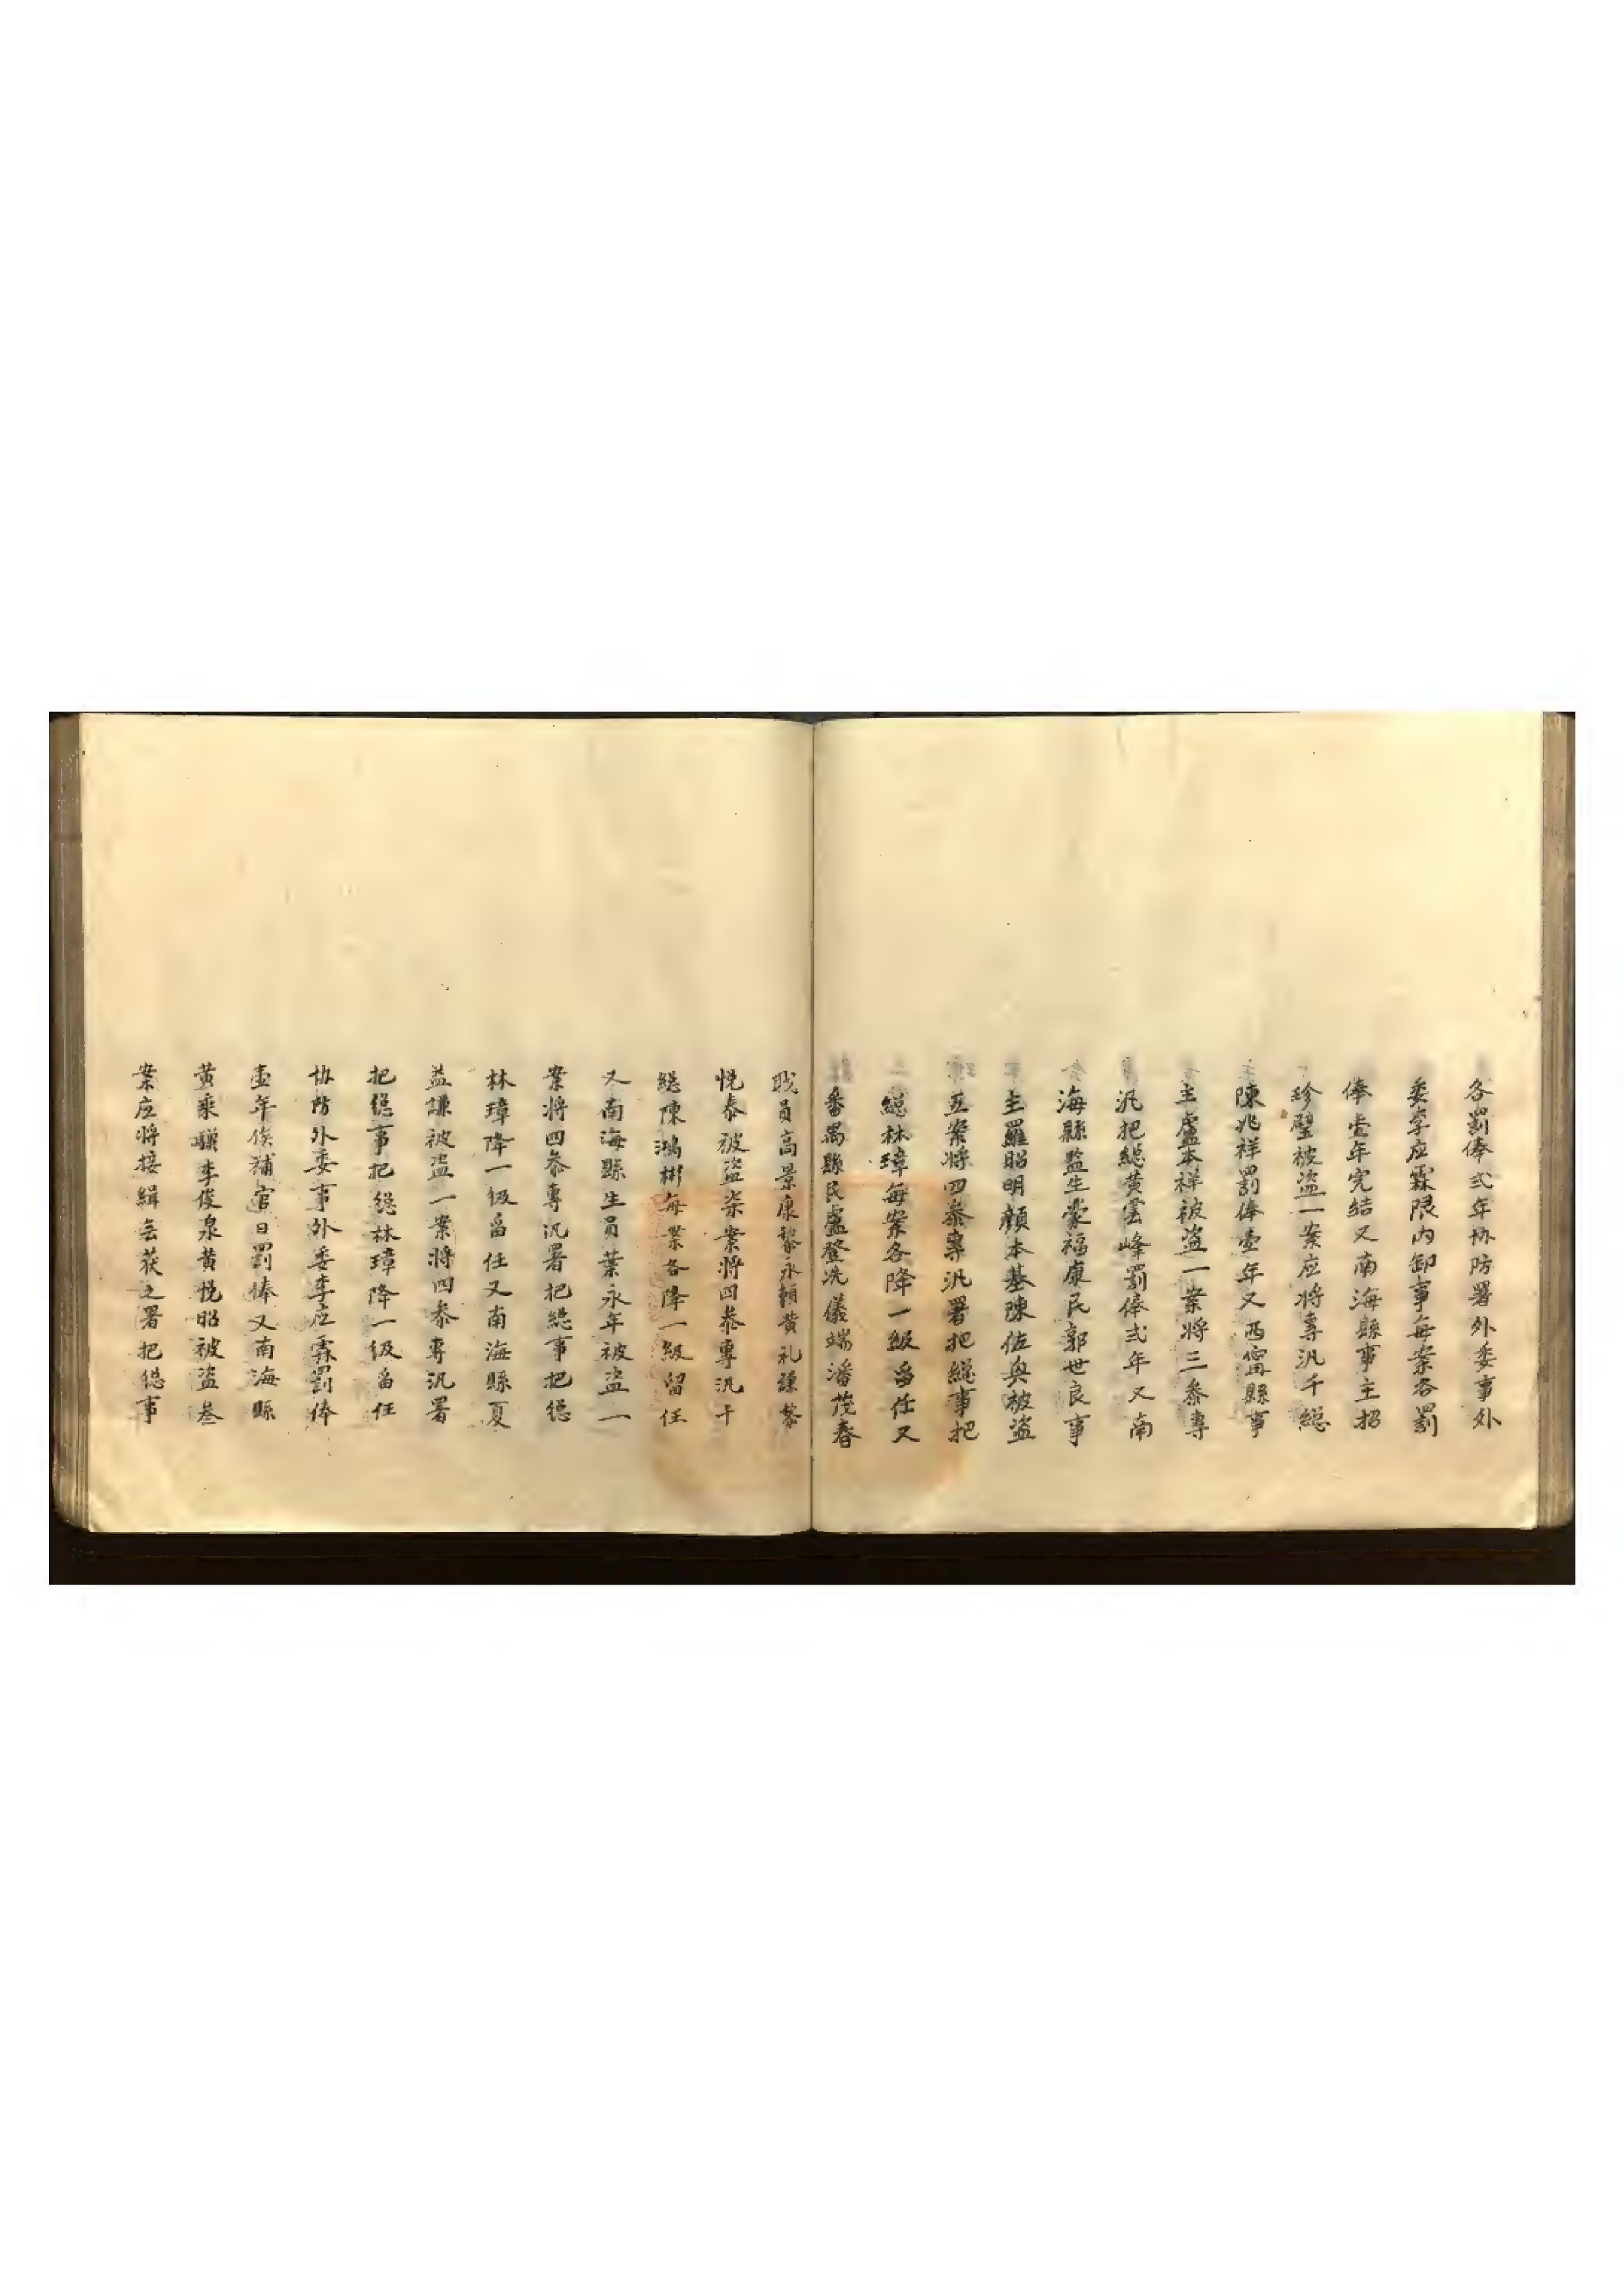 各罰俸弍年协防署外委事外
委李应霖限内卸事每案各罰
俸壹年完結又南海縣事主招
珍璧被盜一案应将專汛千縂
陳兆祥罰俸壹年又西甯縣事
主盧本祥被盜一案将三叅專
汛把縂黄雲峰罰俸弍年又南
海縣監生蒙福康民郭世良事
主羅昭明顔本基陳佐興被盜
五案将四叅專汛署把縂事把
縂林璋每案各降一級畄任又
番禺縣民盧登洗儀端潘茂春
戝員高景康黎永賴黄礼謙黎
悦泰被盜柒案将四叅專汛千
縂陳鴻彬每案各降一級留任
又南海縣生員葉永年被盜一
案将四叅專汛署把縂事把縂
林璋降一級畄任又南海縣夏
益謙被盜一案将四叅專汛署
把縂事把縂林璋降一級畄任
协防外委事外委李应霖罰俸
壹年俟補官日罰俸又南海縣
黄乘驥李俊泉黄悦昭被盜叁
案应将接緝無获之署把縂事